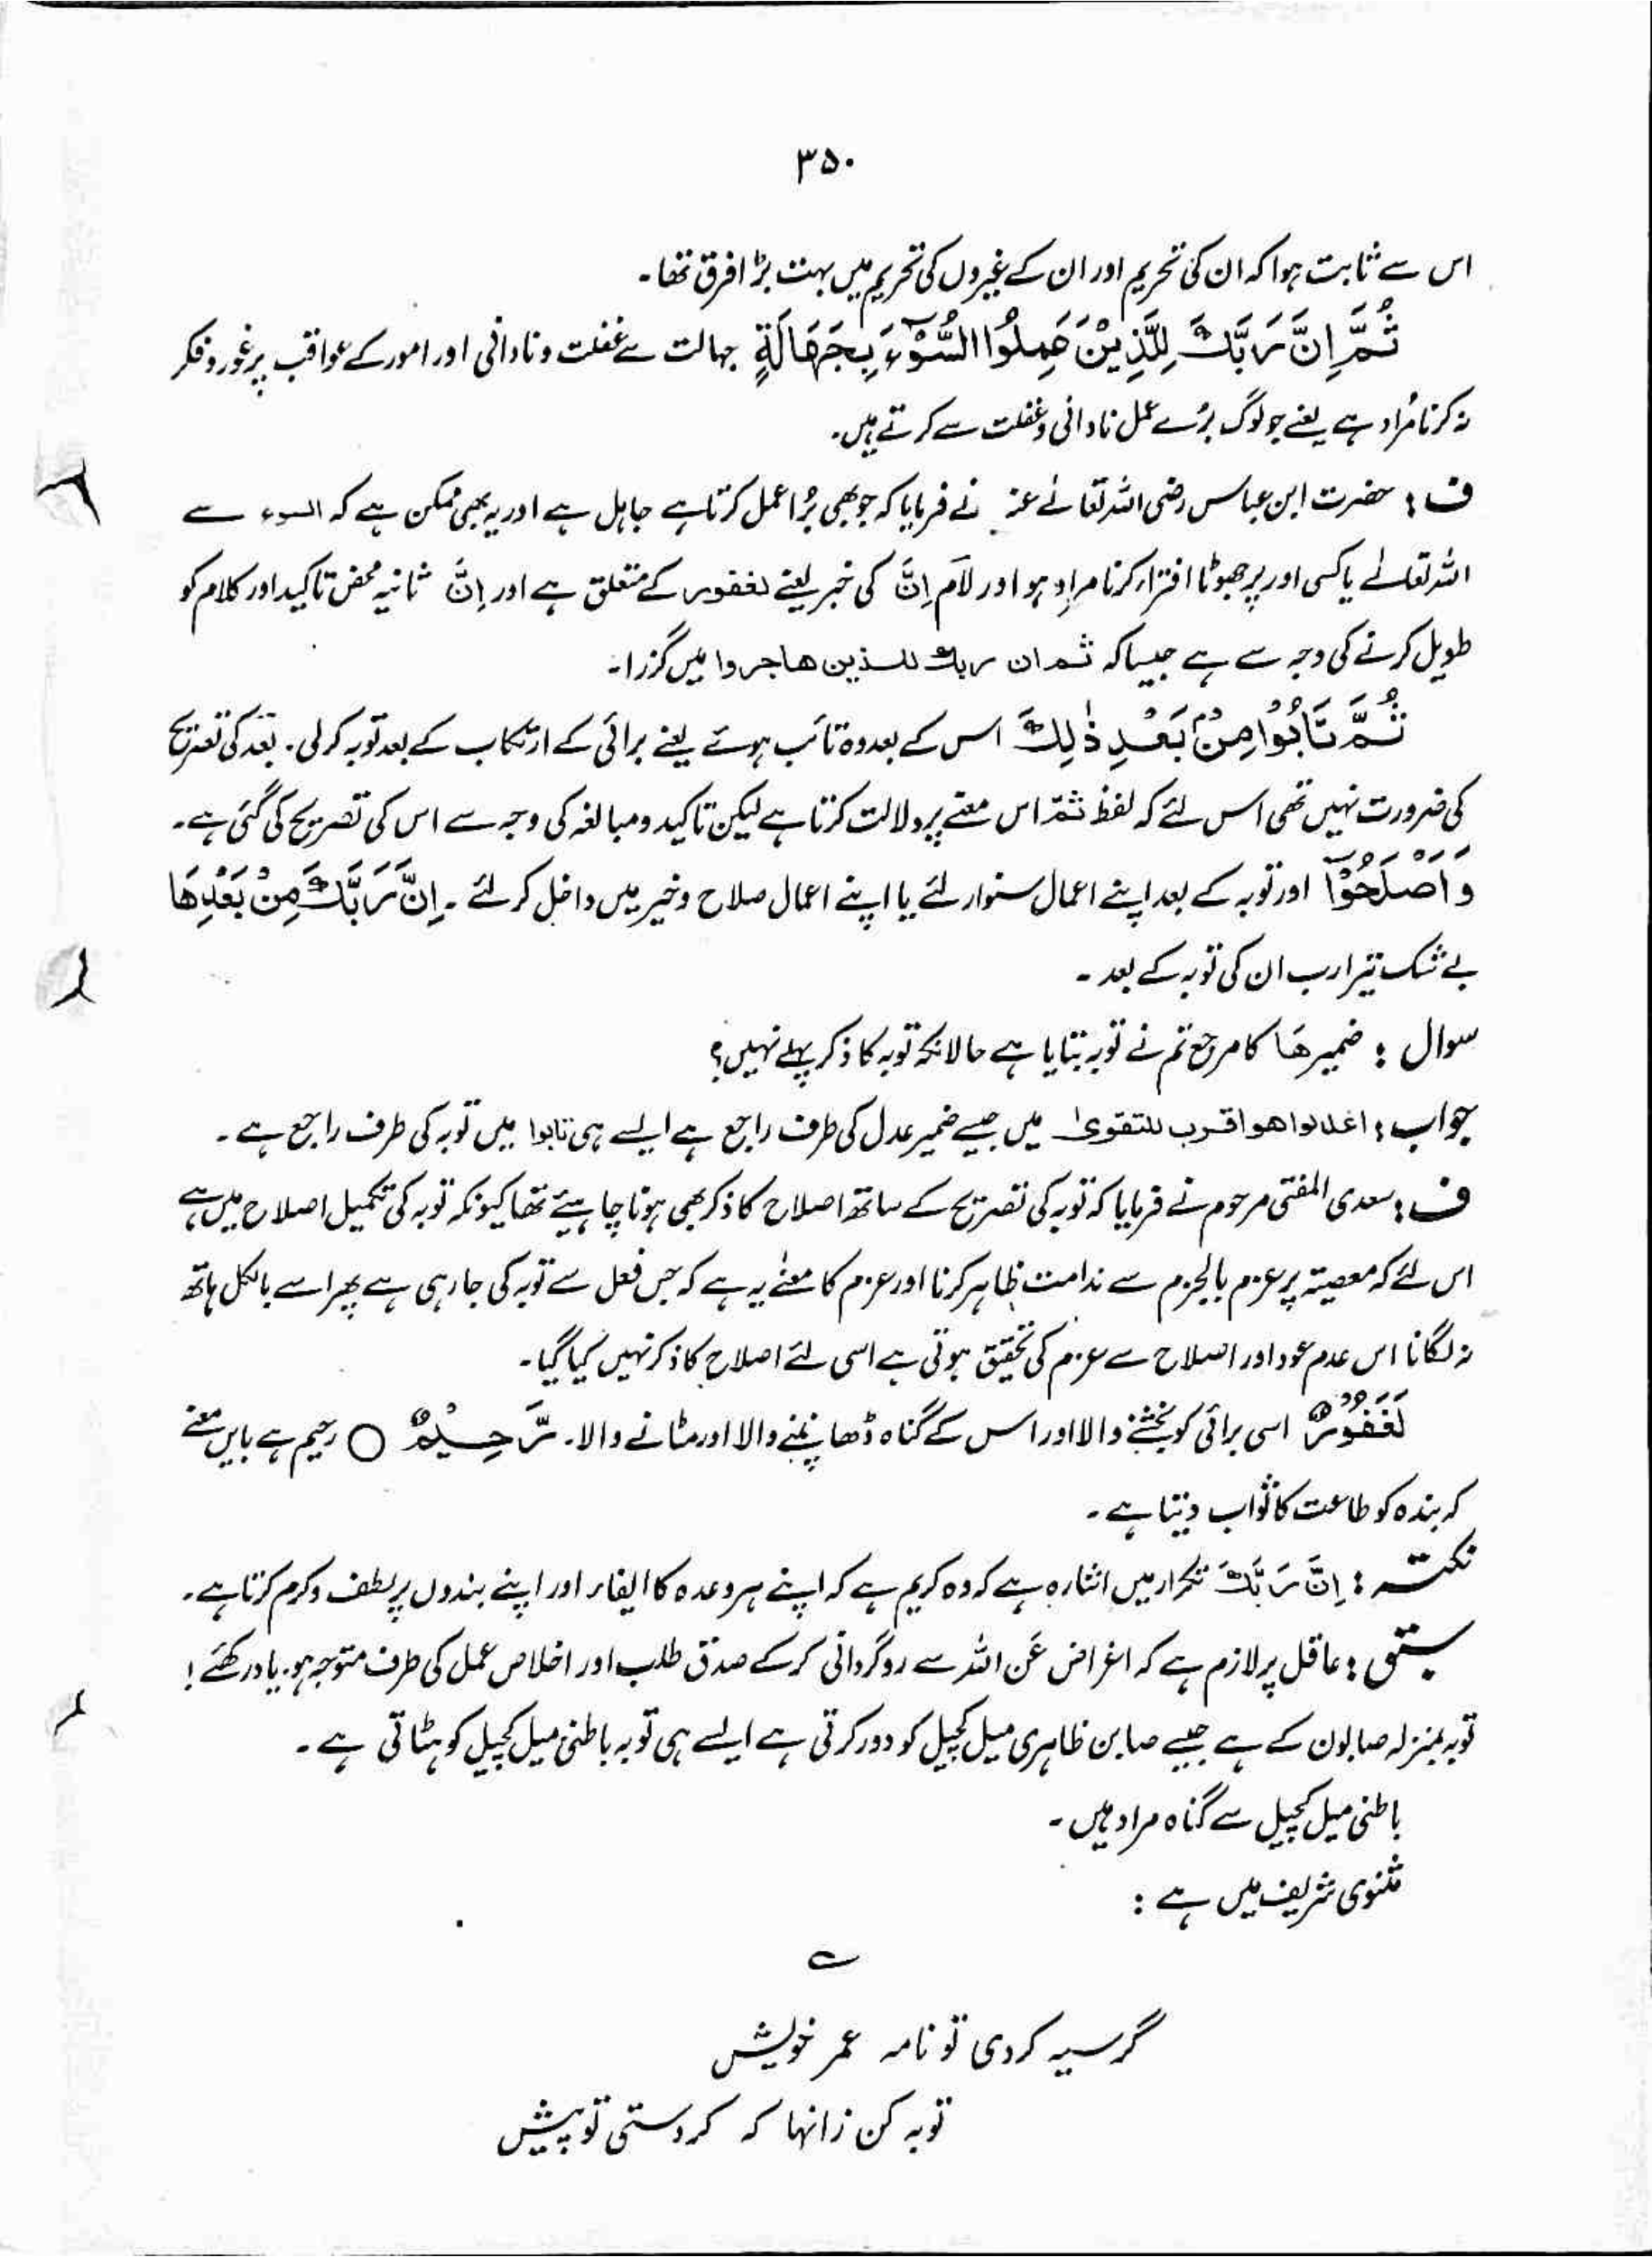 ۳۵۰
اس سے ثابت ہوا کہ ان کی تحریم اور ان کے غیروں کی تحریم میں بہت بڑا فرق تھا۔
ثُمَّ اِنَّ رَبَّكَ لِلَّذِيْنَ عَمِلُوا السُّوْٓءَ بِجَهَالَةٍ جہالت سے غفلت و نادانی اور امور کے عواقب پر غور و فکر
نہ کرنا مُراد ہے یعنے جو لوگ بُرے عمل نادانی و غفلت سے کرتے ہیں۔
ف : حضرت ابن عباس رضی اللہ تعالٰے عنہ نے فرمایا کہ جو بھی بُرا عمل کرتا ہے جاہل ہے اور یہ بھی ممکن ہے کہ السوء سے
اللہ تعالٰے یا کسی اور پر جھوٹا افتراء کرنا مراد ہو اور لاَم اِنَّ کی خبر یعنے لغفور کے متعلق ہے اور اِنَّ ثانیہ محض تاکید اور کلام کو
طویل کرنے کی وجہ سے ہے جیسا کہ ثم ان ربك للذین ھاجروا میں گزرا۔
ثُمَّ تَابُوْا مِنْۢ بَعْدِ ذٰلِكَ اس کے بعد وہ تائب ہوئے یعنے برائی کے ارتکاب کے بعد توبہ کر لی۔ بَعْد کی تصریح
کی ضرورت نہیں تھی اس لئے کہ لفظ ثمّ اس معنے پر دلالت کرتا ہے لیکن تاکید و مبالغہ کی وجہ سے اس کی تصریح کی گئی ہے۔
وَاَصْلَحُوْٓا اور توبہ کے بعد اپنے اعمال سنوار لئے یا اپنے اعمال صلاح و خیر میں داخل کر لئے۔ اِنَّ رَبَّكَ مِنْۢ بَعْدِهَا
بے شک تیرا رب ان کی توبہ کے بعد ۔
سوال : ضمیر ھَا کا مرجع تم نے توبہ بتایا ہے حالانکہ توبہ کا ذکر پہلے نہیں؟
جواب : اعدلوا ھو اقرب للتقوٰی میں جیسے ضمیر عدل کی طرف راجع ہے ایسے ہی تابوا میں توبہ کی طرف راجع ہے ۔
ف : سعدی المفتی مرحوم نے فرمایا کہ توبہ کی تصریح کے ساتھ اصلاح کا ذکر بھی ہونا چاہیئے تھا کیونکہ توبہ کی تکمیل اصلاح میں ہے
اس لئے کہ معصیۃ پر عزم بالجزم سے ندامت ظاہر کرنا اور عزم کا معنٰے یہ ہے کہ جس فعل سے توبہ کی جا رہی ہے پھر اسے بالکل ہاتھ
نہ لگانا اس عدم عود اور اصلاح سے عزم کی تحقیق ہوتی ہے اسی لئے اصلاح کا ذکر نہیں کیا گیا۔
لَغَفُوْرٌ اسی برائی کو بخشنے والا اور اس کے گناہ ڈھانپنے والا اور مٹانے والا۔ رَّحِيْمٌ ○ رحیم ہے بایں معنے
کہ بندہ کو طاعت کا ثواب دیتا ہے ۔
نکتہ : اِنَّ رَبَّكَ تکرار میں اشارہ ہے کہ وہ کریم ہے کہ اپنے ہر وعدہ کا ایفاء اور اپنے بندوں پر لطف و کرم کرتا ہے ۔
سبق : عاقل پر لازم ہے کہ اعراض عَن اللہ سے روگردانی کر کے صدق طلب اور اخلاص عمل کی طرف متوجہ ہو۔ یاد رکھئے !
توبہ بمنزلہ صابون کے ہے جیسے صابن ظاہری میل کچیل کو دور کرتی ہے ایسے ہی توبہ باطنی میل کچیل کو ہٹاتی ہے ۔
باطنی میل کچیل سے گناہ مراد ہیں ۔
مثنوی شریف میں ہے :
؎
گر سیہ کردی تو نامہ عمر خویش
توبہ کن زانہا کہ کردستی تو پیش